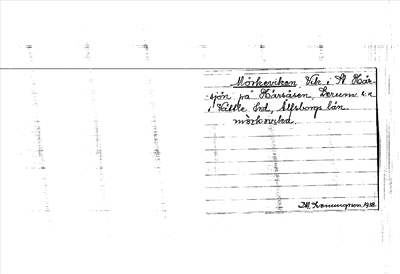 Mörkeviken Vik i St Hår-
sjön på Hårsåsen, Lerum sn
i Vättle hd, Älfsborgs län.
mörkevika.
1928